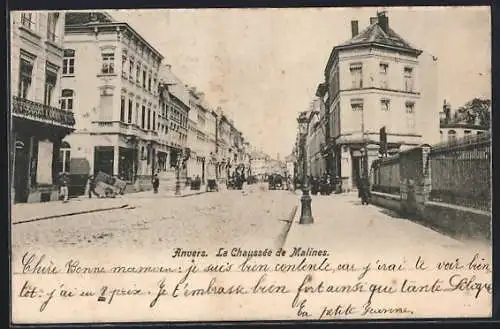 Anvers. La Chaussée de Malines.
Chère Bonne maman: je suis bien contente, car j'irai te voir bien-
tôt: j'ai eu 2 prix. Je t'embrasse bien fort ainsi que tante
ta petite Jeanne.